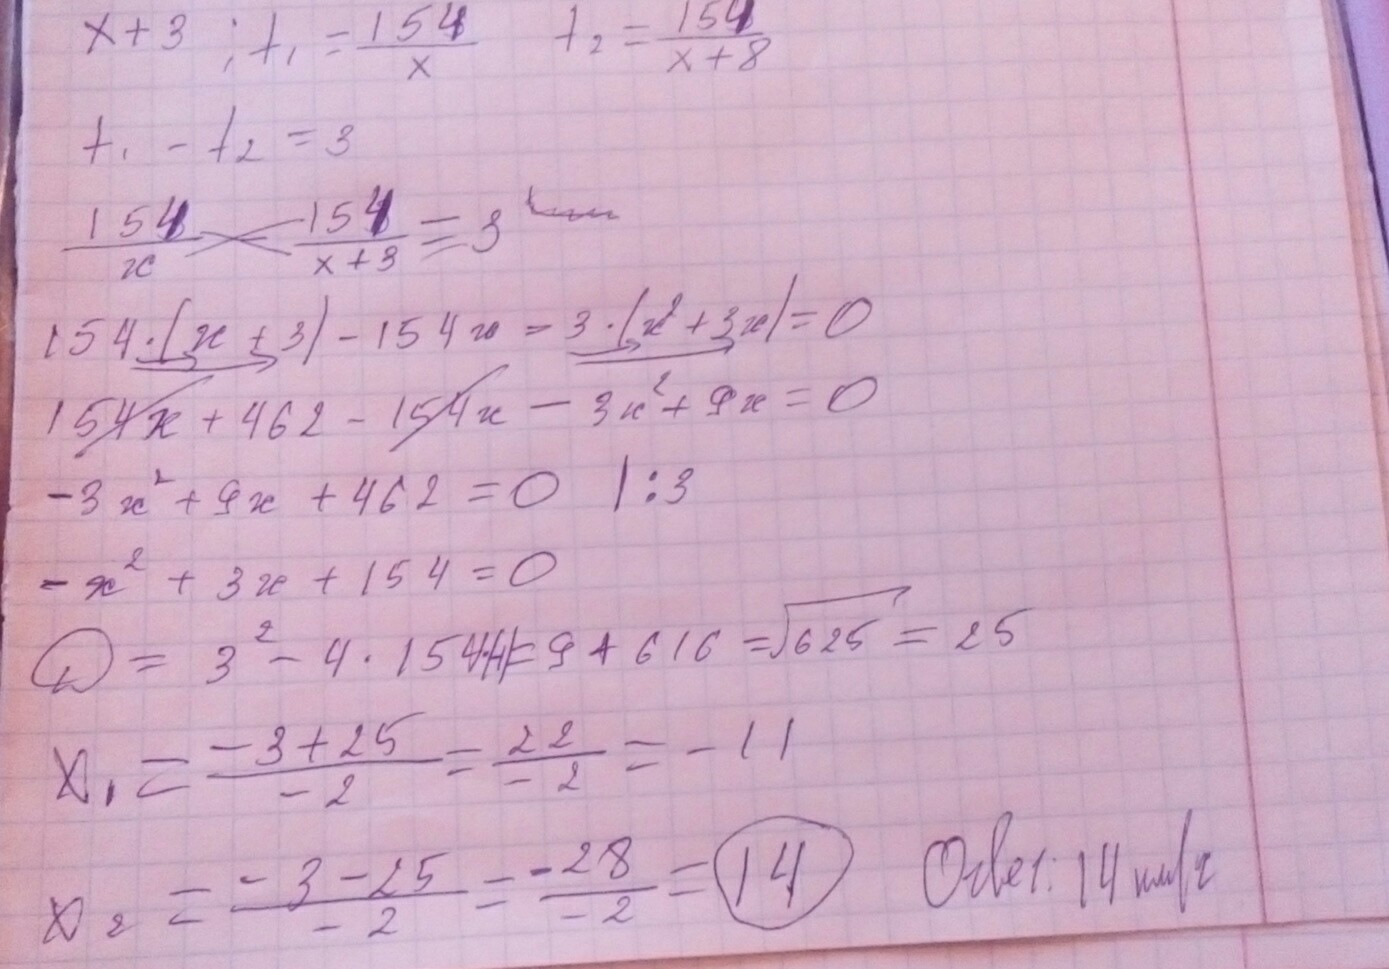 x+3 ; t₁ = 154/x t₂ = 154/(x+8)
t₁ - t₂ = 3
154/x 154/(x+3) = 3
154·(x+3) - 154x - 3·(x²+3x) = 0
154x + 462 - 154x - 3x² + 9x = 0
-3x² + 9x + 462 = 0 | :3
-x² + 3x + 154 = 0
D = 3² - 4·154 = 9 + 616 = √625 = 25
x₁ = (-3+25)/(-2) = 22/(-2) = -11
x₂ = (-3-25)/(-2) = -28/(-2) = 14 Ответ: 14 км/ч